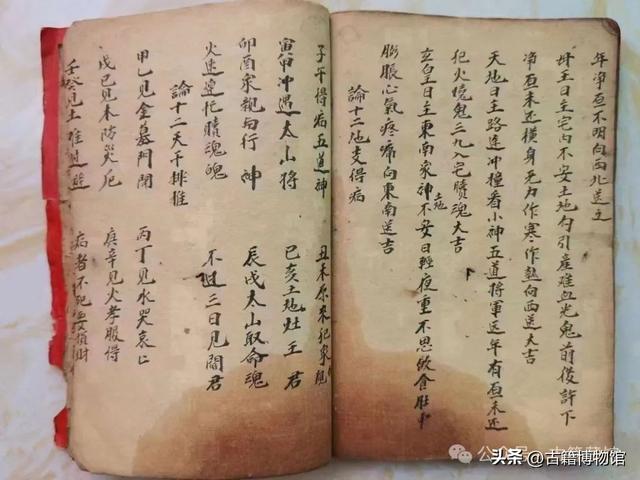 年净愿不明向西北送之
母王日主宅内不安土地勾引產难血光鬼前後許下
净愿未还横身无力作寒作熱向西送大吉
天地日主路途冲撞看小神五道將軍送年有愿未还
犯火燒鬼三九入宅贖魂大吉
玄皇日主東南家神土地不安日輕夜重不思飲食肚中
膨脹心氣疼痛向東南送吉
論十二地支得病
子午得病五道神 丑未原來犯家親
寅甲冲遇太山将 巳亥土地灶王君
卯酉家親与行神 辰戌太山取命魂
火速送他贖魂魄 不过三日見閻君
論十二天干排推
甲乙見金墓門開 丙丁見水哭哀哀
戊己見木防災厄 庚辛見火孝服得
壬癸見土难逃避 病者不死要損財
公众号
头条 @古籍博物馆